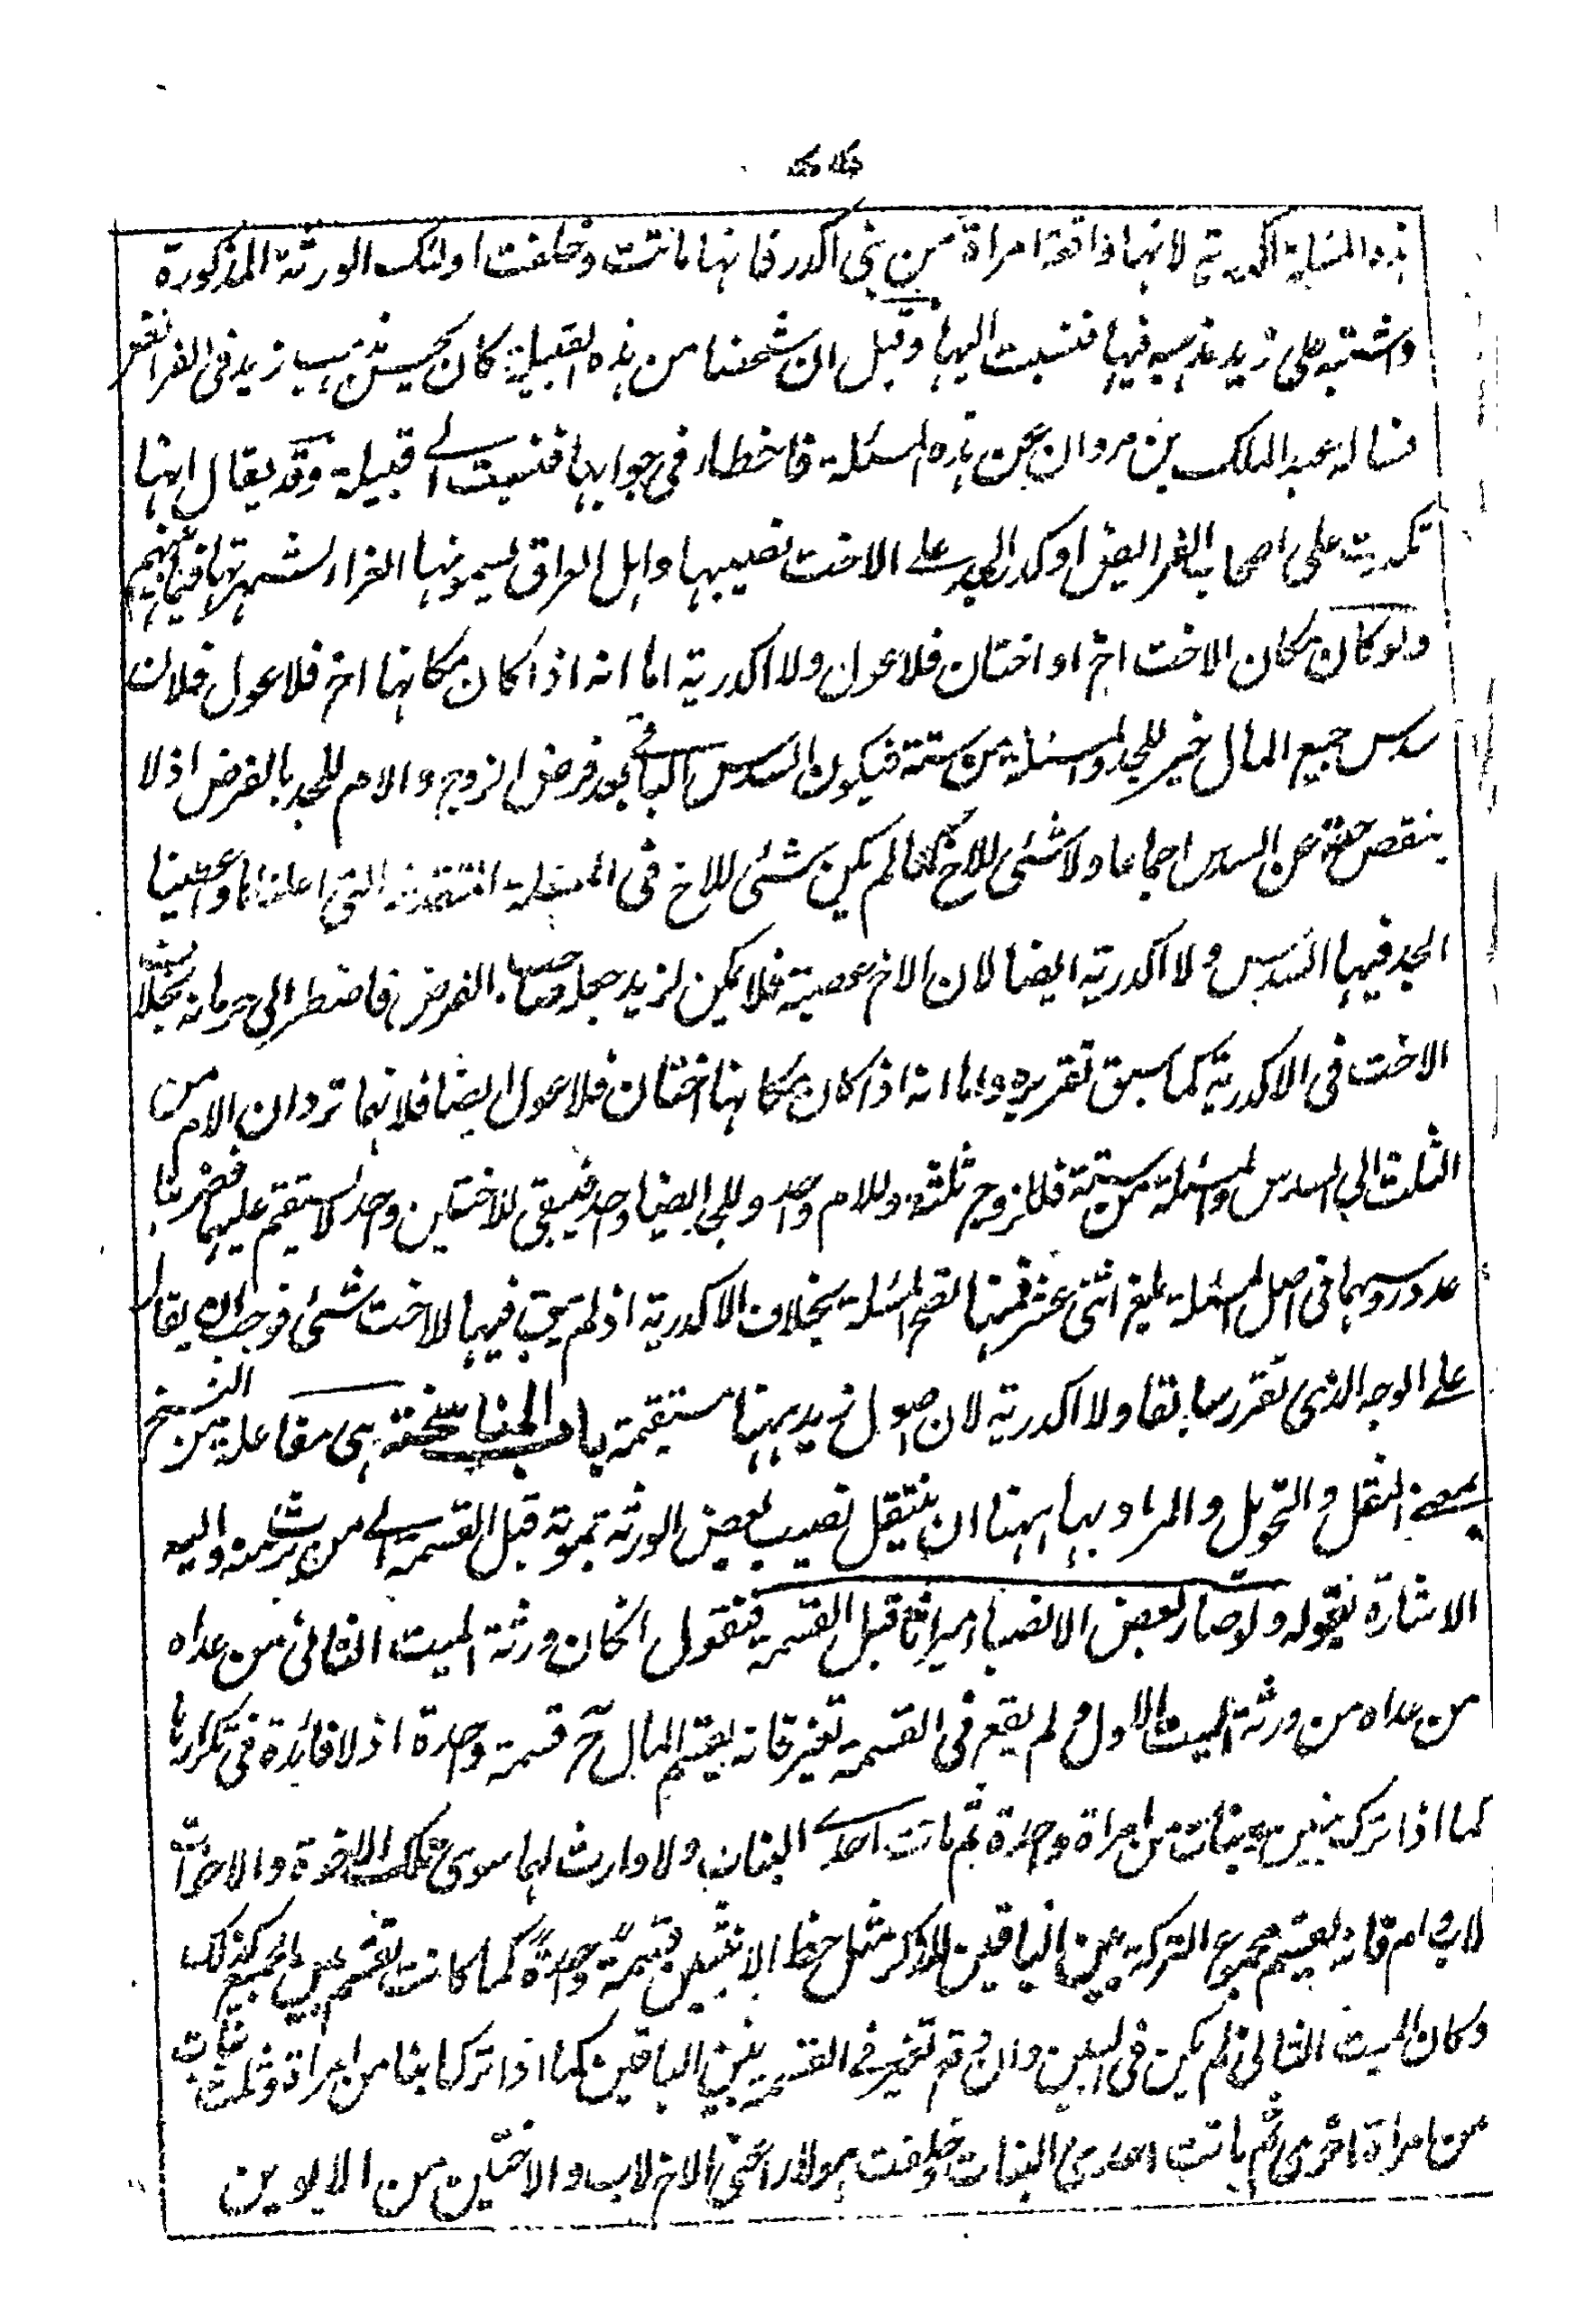 هذه المسئلة اكدرية لانها واقعة امراة من بنى اكدر فانها ماتت وخلفت اولئك الورثة المذكورة
واشتبه على زيد مذهبه فيها فنسبت اليها وقيل ان شخصا من هذه القبيلة كان يحسن مذهب زيد فى الفرائض
فساله عبد الملك بن مروان عن هذه المسئلة فاخطا فى جوابها فنسبت الى قبيلة وقد يقال انها
تكدرت على اصحاب الفرائض او كدر الجد على الاخت نصيبها واهل العراق يسمونها الغراء لشهرتها فيما بينهم
ولو كان مكان الاخت اخ او اختان فلا عول ولا اكدرية اما انه اذا كان مكانها اخ فلا عول فلان
سدس جميع المال خير للجد والمسئلة من ستة فيكون السدس الباقى بعد فرض الزوج والام للجد بالفرض اذ لا
ينقص حقه عن السدس اجماعا ولا شئى للاخ كما لم يكن شئى للاخ فى المسئلة المتقدمة التى اعلناها وعطينا
الجد فيها السدس ولا اكدرية ايضا لان الاخ عصبة فلا يمكن لزيد جعله صاحب الفرض فاضطر الى حرمانه بخلاف
الاخت فى الاكدرية كما سبق تقريره واما انه اذا كان مكانها اختان فلا عول ايضا فلانهما تردان الام من
الثلث الى السدس والمسئلة من ستة فللزوج ثلثة وللام واحد وللجد ايضا واحد فيبقى للاختين واحد لا يستقيم عليهما فضربنا
عدد روسهما فى اصل المسئلة بلغ اثنى عشر فمنها تصح المسئلة بخلاف الاكدرية اذ لم يبق فيها للاخت شئى فوجب ان يقال
على الوجه الذى تقرر سابقا ولا اكدرية لان اصول زيد ههنا مستقيمة باب المناسخة هى مفاعلة من النسخ
بمعنى النقل والتحويل والمراد بها ههنا ان ينتقل نصيب بعض الورثة بموته قبل القسمة الى من يرث منه واليه
الاشارة بقوله ولو صار بعض الانصباء ميراثا قبل القسمة فنقول ان كان ورثة الميت الثانى من عداه
من عداه من ورثة الميت الاول ولم يقع فى القسمة تغير فانه يقسم المال ح قسمة واحدة اذ لا فائدة فى تكرارها
كما اذا ترك بنين وبنات من امراة واحدة ثم ماتت احدى البنات ولا وارث لها سوى تلك الاخوة والاخوات
لاب وام فانه يقسم مجموع التركة بين الباقين للذكر مثل حظ الانثيين قسمة واحدة كما كانت تقسم بين الجميع كذلك
وكان الميت الثانى لم يكن فى البين وان وقع تغير فى القسمة بين الباقين كما اذا ترك ابنا من امراة وثلث بنات
من امراة اخرى ثم ماتت احدى البنات وخلفت هولاء اعنى الاخ لاب والاختين من الابوين